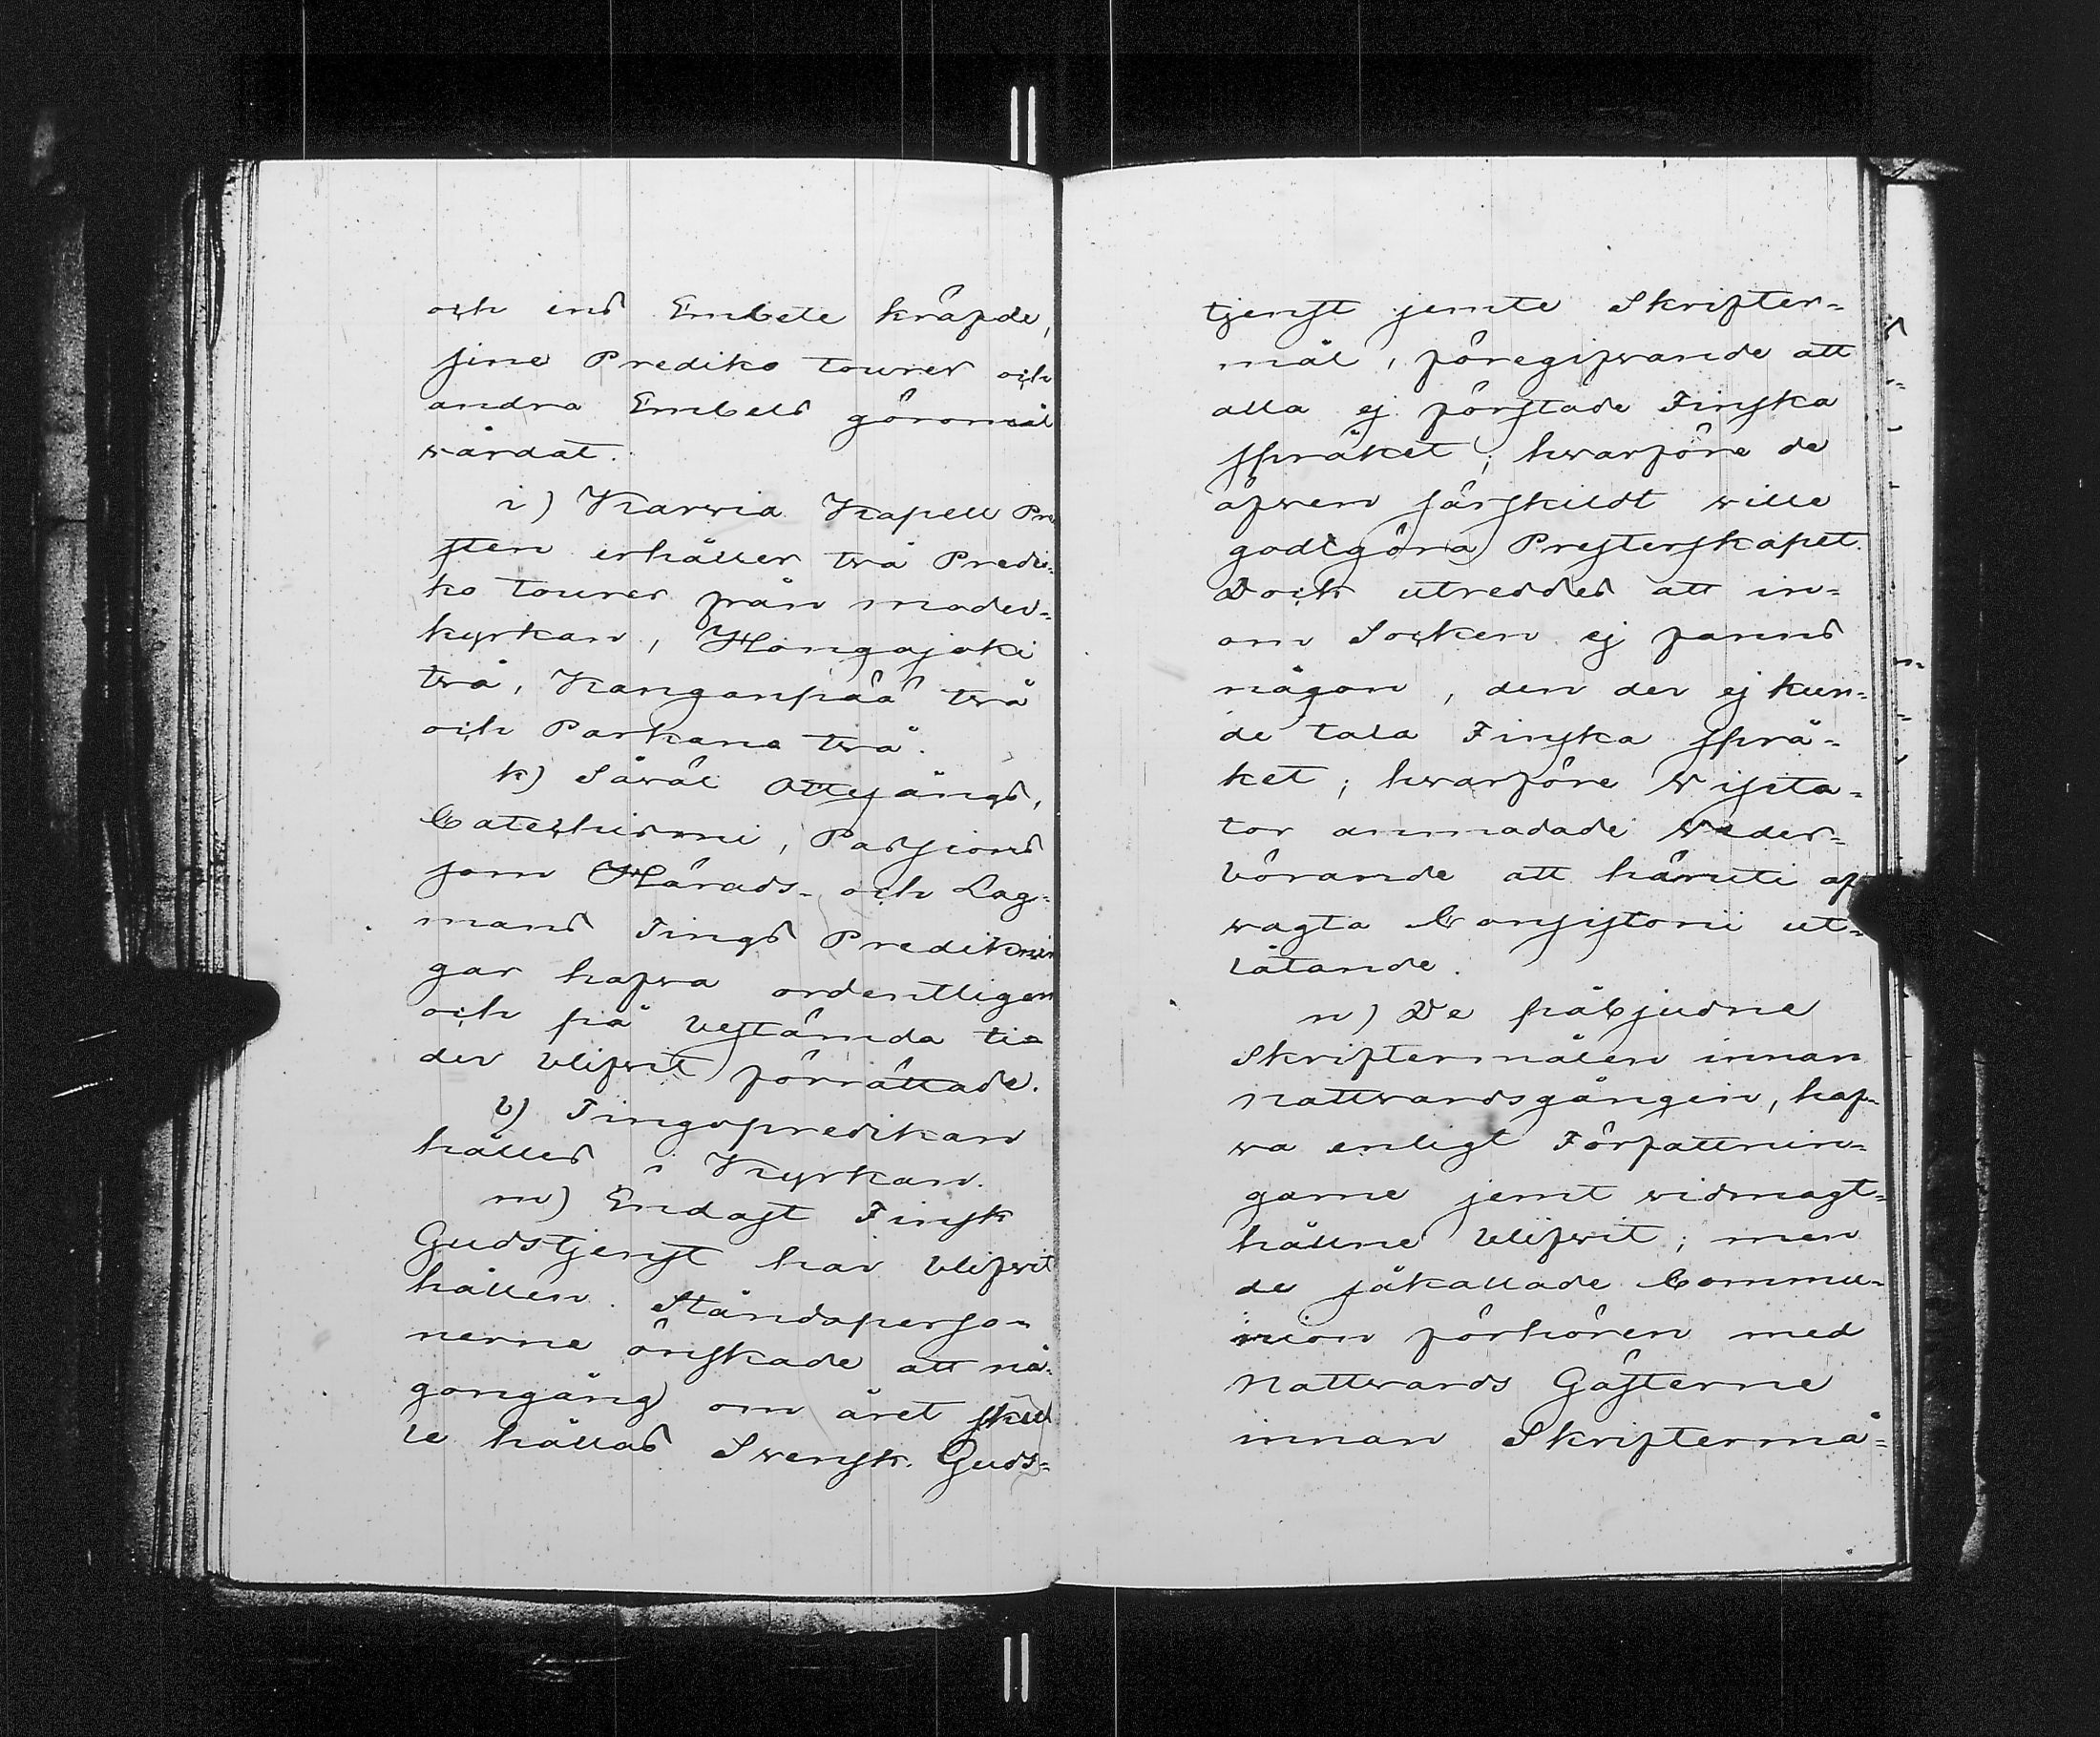 och ens Embete kräfde,
sine Prediko tourer och
andra Embets göromål
vårdat.
i) Karvia Kapell Pre
sten erhåller två Predi-
ko tourer från moder-
kyrkan, Hongojoki
två, Kanganpää två
och Parkano två.
k) Såväl Ottesångs,
Catechismi, Passions
som Härads- och Lag-
mans Tings Prediknin
gar hafva ordentligen
och på bestämda ti-
der blifvit förrättade.
l) Tingspredikan
hålles i Kyrkan.
m) Endast Finsk
Gudstjenst har blifvit
hållen. Ståndsperso-
nerne önskade att nå-
gongång om året skul
le hållas Svensk Guds-
tjenst jemte Skrifter-
mål, föregifvande att
alla ej förstode Finska
språket; hvarföre de
äfven särskildt ville
godtgöra Presterskapet.
Dock utreddes att in-
om Socken ej fanns
någon, den der ej kun-
de tala Finska Språ-
ket; hvarföre Visita-
tor anmodade Veder-
börande att häruti af-
vagta Consistorii ut-
låtande.
n) De påbjudne
Skriftermålen innan
Nattvardsgången, haf-
va enligt Författnin-
garne jemt vidmagt-
hållne blifvit; men
de såkallade Commu-
nion förhören med
Nattvards Gästerne
innan Skriftermå-